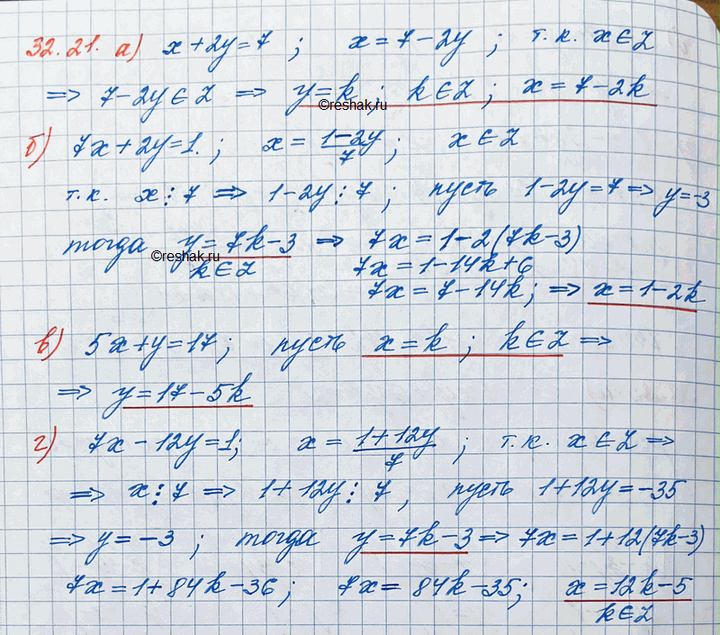 32.21. а) x+2y=7 ; x=7-2y ; т.к. x∈Z
=> 7-2y∈Z => y=k ; k∈Z ; x=7-2k
©reshak.ru
б) 7x+2y=1. ; x= (1-2y)/7 ; x∈Z
т.к. x⋮7 => 1-2y⋮7 ; пусть 1-2y=7 => y=-3
тогда y=7k-3 => 7x=1-2(7k-3)
©reshak.ru
k∈Z 7x=1-14k+6
7x=7-14k ; => x=1-2k
в) 5x+y=17 ; пусть x=k ; k∈Z =>
=> y=17-5k
г) 7x-12y=1; x= (1+12y)/7 ; т.к. x∈Z =>
=> x⋮7 => 1+12y⋮7 , пусть 1+12y=-35
=> y=-3 ; тогда y=7k-3 => 7x=1+12(7k-3)
7x=1+84k-36 ; 7x=84k-35; x=12k-5
k∈Z